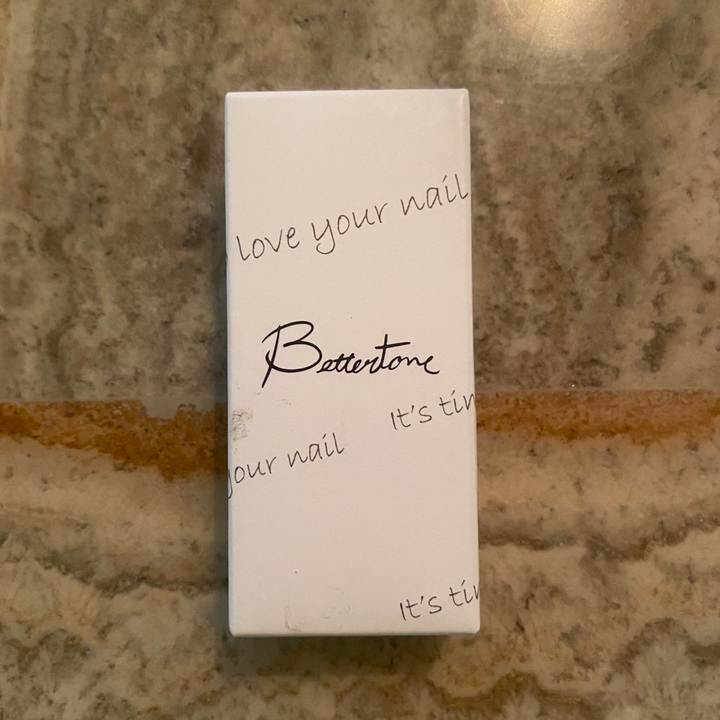 love your nail
Bettertone
It's tim
your nail
It's tim